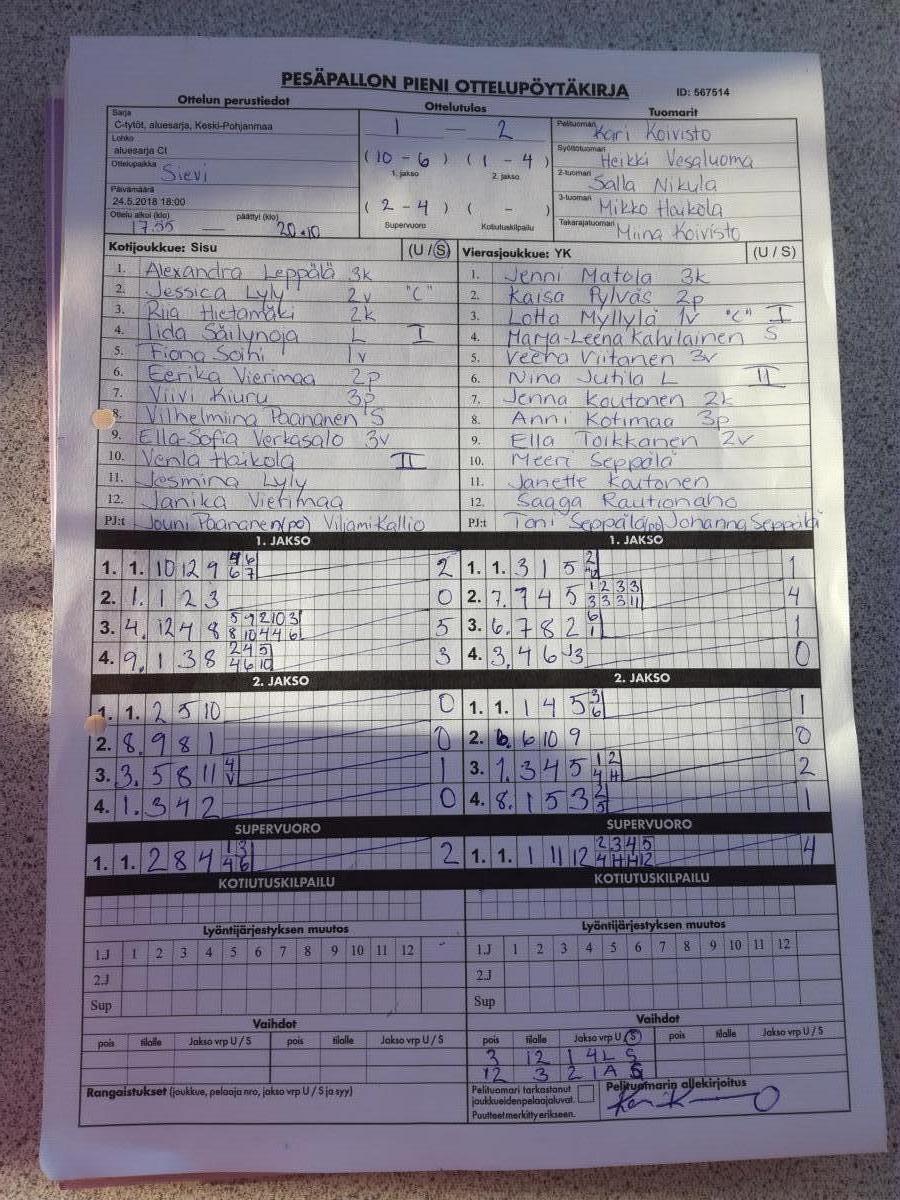 PESÄPALLON PIENI OTTELUPÖYTÄKIRJA ID: 567514
Ottelun perustiedot Ottelutulos Tuomarit
Sarja
C-tytöt, aluesarja, Keski-Pohjanmaa
Lohko
aluesarja CI
Ottelupaikka Sievi
Päivämäärä
24.5.2018 18:00
Ottelu alkoi (klo) päättyi (klo)
17.55 — 20.10
1 — 2
(10 - 6) (1 - 4)
1. jakso 2. jakso
(2 - 4) ( - )
Supervuoro Kotiutuskilpailu
Pelituomari Kari Koivisto
Syöttötuomari Heikki Vesaluoma
2-tuomari Salla Nikula
3-tuomari Mikko Haikola
Takarajatuomari Miina Koivisto
Kotijoukkue: Sisu (U / S)
1. Alexandra Leppälä 3k
2. Jessica Lyly 2v "C"
3. Riia Hietamäki 2k
4. Iida Säilynoja L I
5. Fiona Soini 1v
6. Eerika Vierimaa 2p
7. Viivi Kiuru 3p
8. Vilhelmiina Paananen S
9. Ella-Sofia Verkasalo 3v
10. Venla Haikola II
11. Jasmina Lyly
12. Janika Vierimaa
PJ:t Jouni Paananen(po) Viljami Kallio
Vierasjoukkue: YK (U / S)
1. Jenni Matola 3k
2. Kaisa Pylväs 2p
3. Lotta Myllylä 1v "C" I
4. Marja-Leena Kahilainen S
5. Veera Viitanen 3v
6. Nina Jutila L II
7. Jenna Koutonen 2k
8. Anni Kotimaa 3p
9. Ella Toikkanen 2v
10. Meeri Seppälä
11. Janette Koutonen
12. Saaga Rautionaho
PJ:t Toni Seppälä(po) Johanna Seppälä
1. JAKSO 1. JAKSO
1. 1. 10 12 9 2
2. 1. 1 2 3 0
3. 4. 12 4 8 5 9 2 10 3 5
8 10 4 4 6
4. 9. 1 3 8 2 4 5 3
4 6 10
1. 1. 3 1 5 1
2. 7. 7 4 5 1 2 3 3 4
3 3 3 11
3. 6. 7 8 2 6 1
1
4. 3. 4 6 0
2. JAKSO 2. JAKSO
1. 1. 2 5 10 0
2. 8. 9 8 1 0
3. 3. 5 8 11 4 1
V
4. 1. 3 4 2 0
1. 1. 1 4 5 3 1
6
2. 6. 6 10 9 0
3. 1. 3 4 5 1 2 2
4 H
4. 8. 1 5 3 2 1
5
SUPERVUORO SUPERVUORO
1. 1. 2 8 4 1 3 2
4 6
1. 1. 1 11 12 2 3 4 5 4
4 H H 12
KOTIUTUSKILPAILU KOTIUTUSKILPAILU
Lyöntijärjestyksen muutos Lyöntijärjestyksen muutos
1.J 1 2 3 4 5 6 7 8 9 10 11 12 1.J 1 2 3 4 5 6 7 8 9 10 11 12
2.J 2.J
Sup Sup
Vaihdot Vaihdot
pois tilalle Jakso vrp U / S pois tilalle Jakso vrp U / S pois tilalle Jakso vrp U / S pois tilalle Jakso vrp U / S
3 12 1 4L S
12 3 2 1A S
Rangaistukset (joukkue, pelaaja nro, jakso vrp U / S ja syy)
Pelituomari tarkastanut
joukkueidenpelaajaluvat.
Puutteet merkitty erikseen.
Pelituomarin allekirjoitus